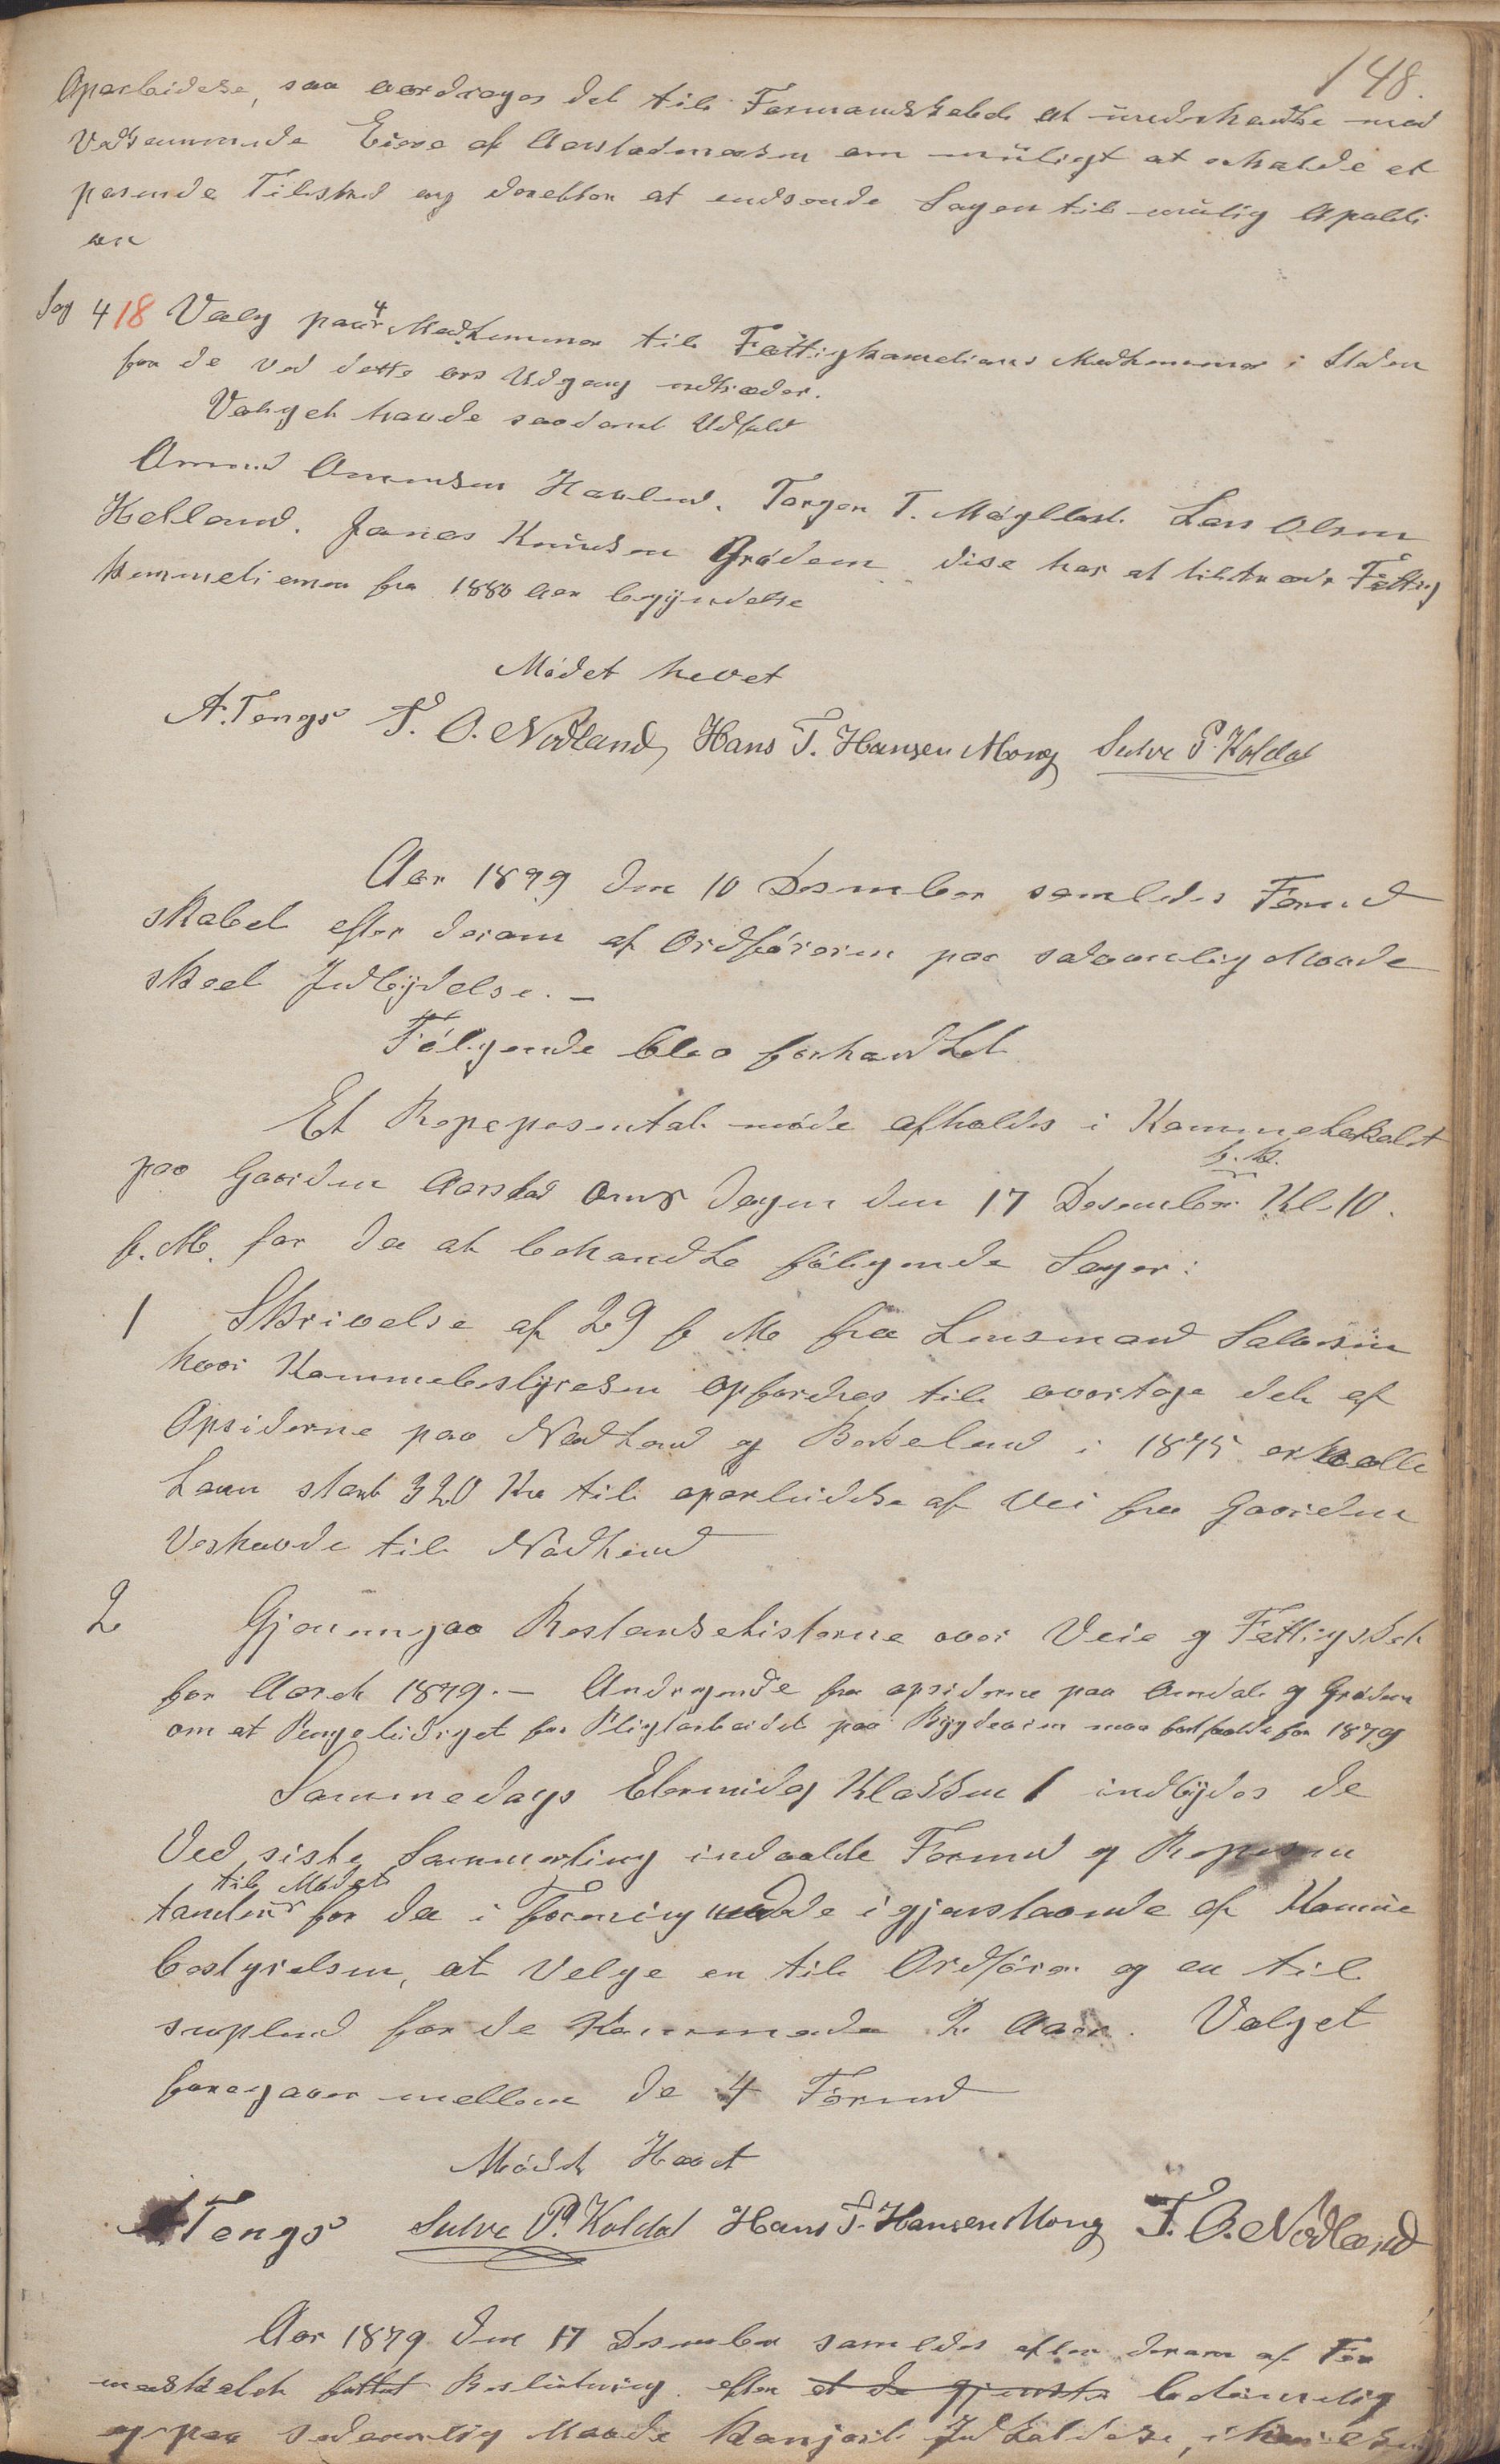 148.
Oparbeidelse, saa overdrages det til Formandskabet at underhandle med
Vedkommende Eiere af Aarstadmarken om muligt at erholde et
pasende Tilskud og derefter at indsende Sagen til mulig Apodti
on
Sag 4 18 Valg paa 4 Medlemmer til Fattigkomelions Medlemmer i Staden
for de ved dette ars Udgang udtræder.
Valget havde saadant Udfald
Omund Omundsen Havland. Torger T. Møgllest. Lars Olsen
Helland. Jonas Knudsen Grødem dise har at tiltræde Fattig
kommelionen fra 1880 Aar begyndelse
Mødet hevet
A. Tengs T. O. Nodland, Hans T. Hansen Mong Sulve P. Koldal
Aar 1879 den 10 Desember samledes Formd
skabet efter derom af Ordføreren paa sedvanlig Maade
skeet Indbydelse. —
Følgende blev forhandlet
Et Repepesentat møde afholdes i Kommelokalet
paa Gaarden Aarstad Onsdagen den 17 Desember f. k. Kl 10.
f. M. for da at behandle følgende Sager:
1 Skrivelse af 29 f M fra Lensmand Salvesen
hvor Kommebestyrelsen opfordres til overtage det af
Opsiderne paa Nodland og Birkeland i 1875 erholdte
Laan stort 320 Kr til oparbeidelse af Vei fra Gaarden
Veshovde til Nodland
2 Gjennemgaa Restanselisterne over Veie og Fattigskat
for Aaret 1879. — Andragende fra opsiderne paa Omdal og Grødem
om at Pengebidraget for Pligtarbeidet paa Bygdeveien maa bortfalde for 1879
Sammedags Etermidag Klokken 1 indbydes de
Ved siste Sammenling indvalte Formd og Represen
tanter til Mødet for da i Forening med de igjenstaaende af Komune
bestyrelsen, at Velge en til Ordfører og en til
supleant for de Kommende 2 Aar. Valget
foregaaer mellem de 4 Formd
Mødet Hævet
A Tengs Sulve P. Koldal Hans T. Hansen Mong T. O. Nodland
Aar 1879 den 17 Desember samledes efter derom af For
mandskabet fattet Beslutning efter et de gjensta betimelig
og paa sedvanlig Maade kungjort Indkaldelse,